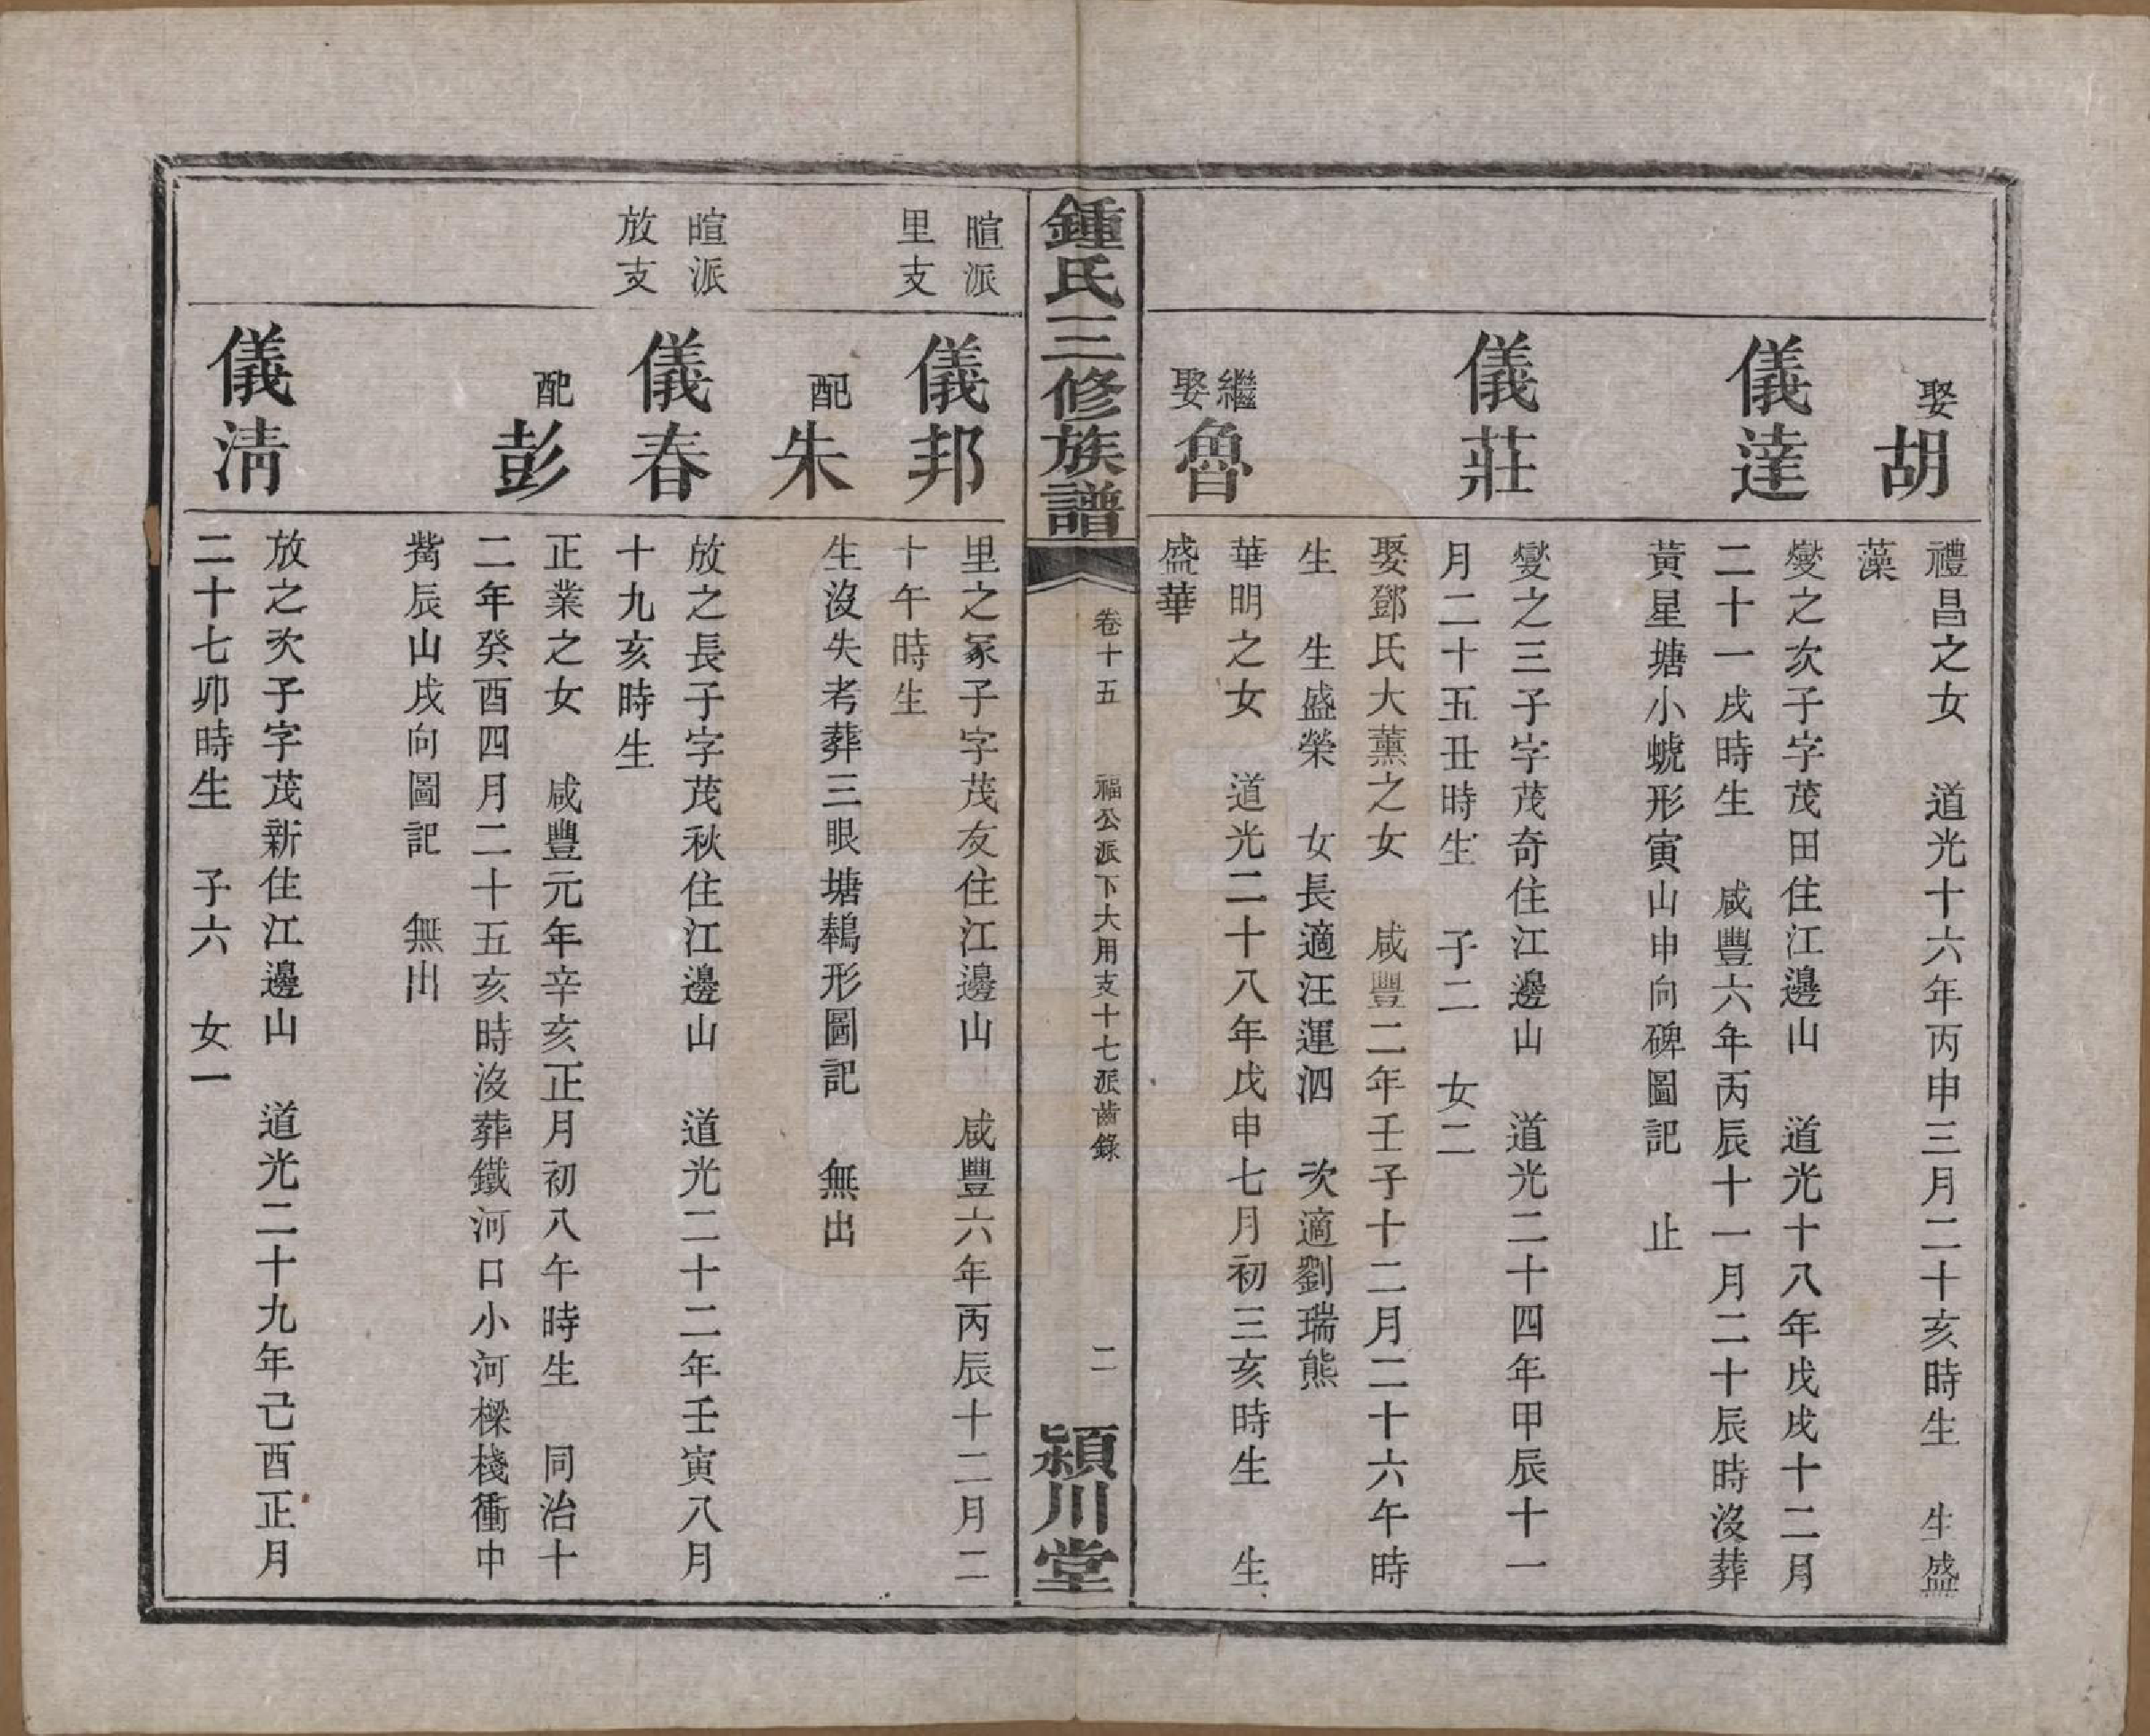 娶胡
禮昌之女　道光十六年丙申三月二十亥時生　生盛
藻
儀達
燮之次子字茂田住江邊山　道光十八年戊戌十二月
二十一戌時生　咸豐六年丙辰十一月二十辰時沒葬
黃星塘小虩形寅山申向碑圖記　止
儀莊
燮之三子字茂奇住江邊山　道光二十四年甲辰十一
月二十五丑時生　子二　女二
娶鄧氏大薰之女　咸豐二年壬子十二月二十六午時
生　生盛榮　女長適汪運泗　次適劉瑞熊
繼娶魯
華明之女　道光二十八年戊申七月初三亥時生　生
盛華
鍾氏三修族譜
卷十五　福公派下大用支十七派齒錄
二
潁川堂
暄派
里支
儀邦
里之冡子字茂友住江邊山　咸豐六年丙辰十二月二
十午時生
配朱
生沒失考葬三眼塘鵝形圖記　無出
暄派
放支
儀春
放之長子字茂秋住江邊山　道光二十二年壬寅八月
十九亥時生
配彭
正業之女　咸豐元年辛亥正月初八午時生　同治十
二年癸酉四月二十五亥時沒葬鐵河口小河樑棧衝中
觜辰山戌向圖記　無出
儀清
放之次子字茂新住江邊山　道光二十九年己酉正月
二十七卯時生　子六　女一